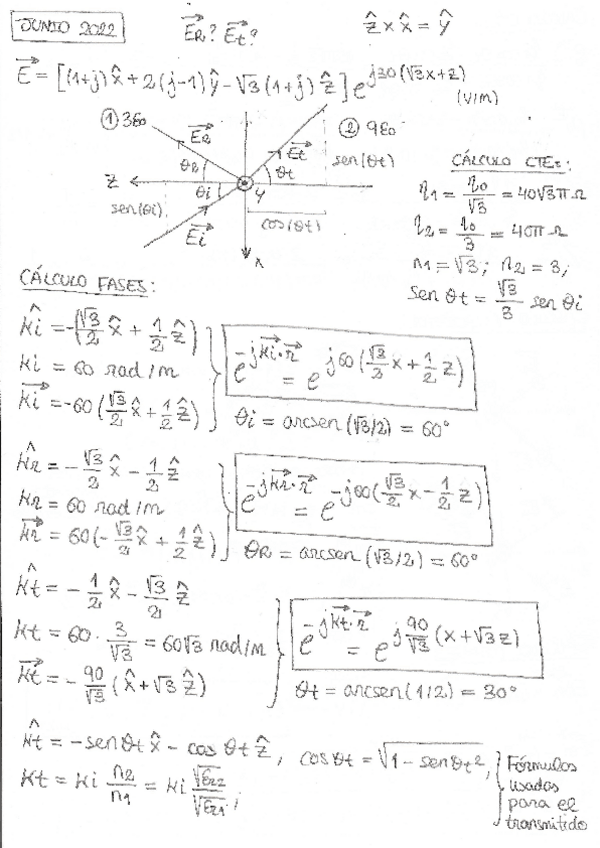 JUNIO 2022
E⃗R? E⃗t?
ẑ x x̂ = ŷ
E⃗ = [(1+j) x̂ + 2(j-1) ŷ - √3 (1+j) ẑ] e^{j30(√3x+z)} (V/m)
① 3ε0
E⃗R
② 9ε0
E⃗t
θR
θt
sen(θt)
z
θi
y
sen(θi)
cos(θt)
E⃗i
x
CÁLCULO CTEs:
η1 = η0/√3 = 40√3π Ω
η2 = η0/3 = 40π Ω
n1 = √3; n2 = 3;
sen θt = √3/3 sen θi
CÁLCULO FASES:
k̂i = -(√3/2 x̂ + 1/2 ẑ)
ki = 60 rad/m
k⃗i = -60 (√3/2 x̂ + 1/2 ẑ)
e^{-jk⃗i·r⃗} = e^{j60(√3/2 x + 1/2 z)}
θi = arcsen (√3/2) = 60°
k̂R = -√3/2 x̂ - 1/2 ẑ
kR = 60 rad/m
k⃗R = 60 (-√3/2 x̂ + 1/2 ẑ)
e^{-jk⃗R·r⃗} = e^{-j60(√3/2 x - 1/2 z)}
θR = arcsen (√3/2) = 60°
k̂t = -1/2 x̂ - √3/2 ẑ
kt = 60 · 3/√3 = 60√3 rad/m
k⃗t = -90/√3 (x̂ + √3 ẑ)
e^{-jk⃗t·r⃗} = e^{j 90/√3 (x + √3 z)}
θt = arcsen (1/2) = 30°
k̂t = -sen θt x̂ - cos θt ẑ, cos θt = √(1 - sen θt²),
kt = ki n2/n1 = ki √εr2/√εr1;
Fórmulas
usadas
para el
transmitido